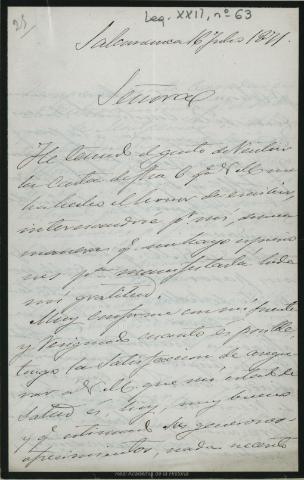 Leg. XXII, nº 63
Salamanca 10 Julio 1871.
Señora
He tenido el gusto de recibir
su carta de fha 6 qe V. M. me
ha hecho el honor de escribir
interesandose pr mi, 
maneras qe no hayo espresio
nes pa manifestarla toda
mi gratitud.
Muy conforme con mi suerte
y resignado cuanto es posible
tengo la satisfaccion de asegu
rar a V. M. que mi estado de
salud es, hoy, muy bueno
y qe estimando sus generosos
ofrecimientos, nada necesito
Real Academia de la Historia